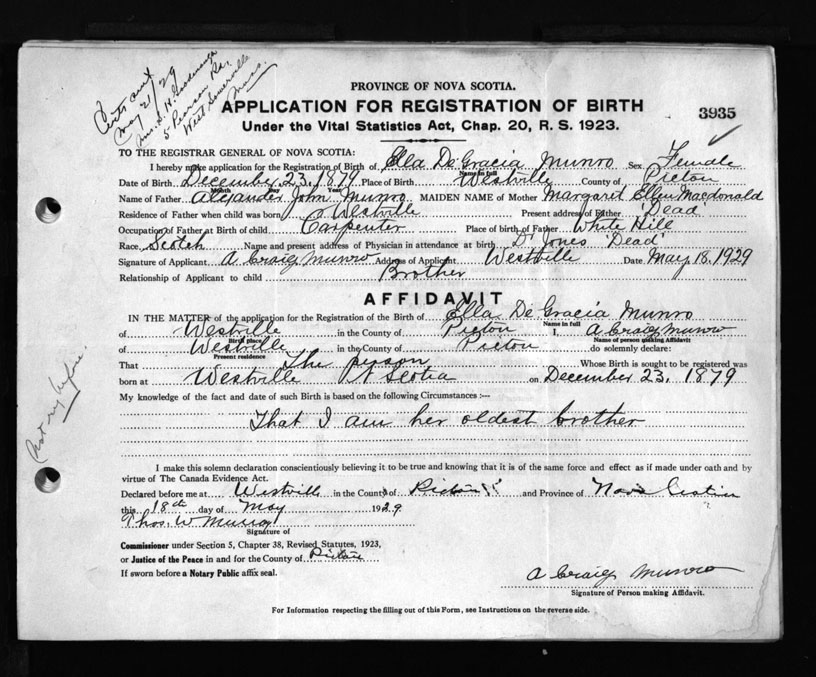 Certs sent
May 21/29
5 Pearson Rd.
West Somerville
Mass.
PROVINCE OF NOVA SCOTIA.
APPLICATION FOR REGISTRATION OF BIRTH
3935
Under the Vital Statistics Act, Chap. 20, R. S. 1923.
TO THE REGISTRAR GENERAL OF NOVA SCOTIA:
I hereby make application for the Registration of Birth of Ella De Gracia Munro Sex Female
Name in full
Date of Birth December 23, 1879 Place of Birth Westville County of Pictou
Month Day Year
Name of Father Alexander John Munro MAIDEN NAME of Mother Margaret Ellen Macdonald
Residence of Father when child was born Westville Present address of Father 'Dead'
Occupation of Father at Birth of child Carpenter Place of birth of Father White Hill
Race Scotch Name and present address of Physician in attendance at birth Dr Jones 'Dead'
Signature of Applicant A Craig Munro Address of Applicant Westville Date May 18, 1929
Relationship of Applicant to child Brother
AFFIDAVIT
IN THE MATTER of the application for the Registration of the Birth of Ella De Gracia Munro
Name in full
of Westville in the County of Pictou I, A Craig Munro
Birth place Name of person making Affidavit
of Westville in the County of Pictou do solemnly declare:
Present residence
That The person Whose Birth is sought to be registered was
born at Westville N Scotia on December 23, 1879
My knowledge of the fact and date of such Birth is based on the following Circumstances :—
That I am her oldest brother
Not reg before.
I make this solemn declaration conscientiously believing it to be true and knowing that it is of the same force and effect as if made under oath and by
virtue of The Canada Evidence Act.
Declared before me at Westville in the County of Pictou and Province of Nova Scotia
this 18th day of May 1929
Thos. W Munroe
Signature of
Commissioner under Section 5, Chapter 38, Revised Statutes, 1923,
or Justice of the Peace in and for the County of Pictou
If sworn before a Notary Public affix seal.
A Craig Munro
Signature of Person making Affidavit.
For Information respecting the filling out of this Form, see Instructions on the reverse side.